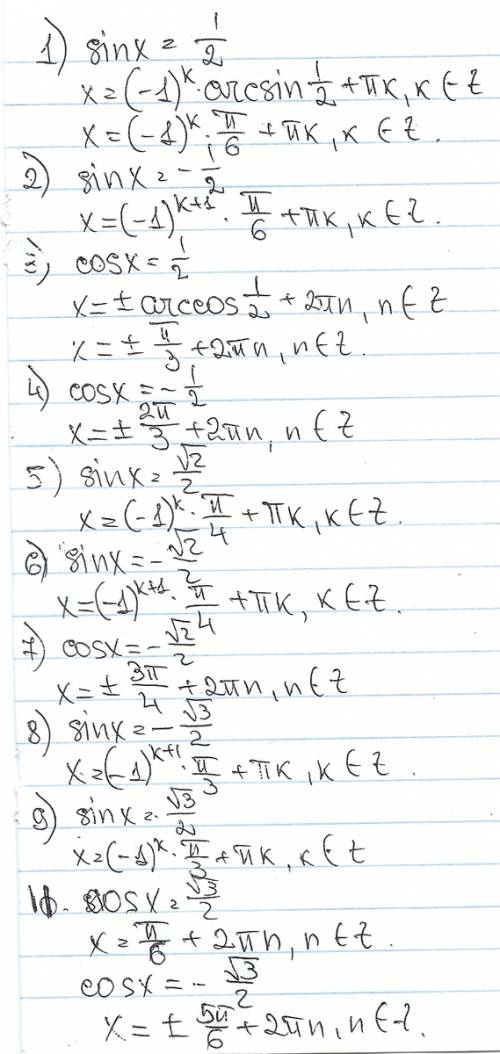 1) sinx = 1/2
x=(-1)^k·arcsin 1/2 +πk, k∈Z
x=(-1)^k·π/6 +πk, k∈Z.
2) sinx = -1/2
x=(-1)^(k+1)·π/6 +πk, k∈Z.
3) cosx = 1/2
x=±arccos 1/2 + 2πn, n∈Z
x=± π/3 +2πn, n∈Z.
4) cosx=-1/2
x=± 2π/3 +2πn, n∈Z
5) sinx= √2/2
x=(-1)^k·π/4 +πk, k∈Z.
6) sinx=-√2/2
x=(-1)^(k+1)·π/4 +πk, k∈Z.
7) cosx=-√2/2
x=± 3π/4 +2πn, n∈Z
8) sinx=-√3/2
x=(-1)^(k+1)·π/3 +πk, k∈Z.
9) sinx= √3/2
x=(-1)^k·π/3 +πk, k∈Z
cosx= √3/2
x= π/6 + 2πn, n∈Z.
cosx = - √3/2
x=± 5π/6 +2πn, n∈Z.